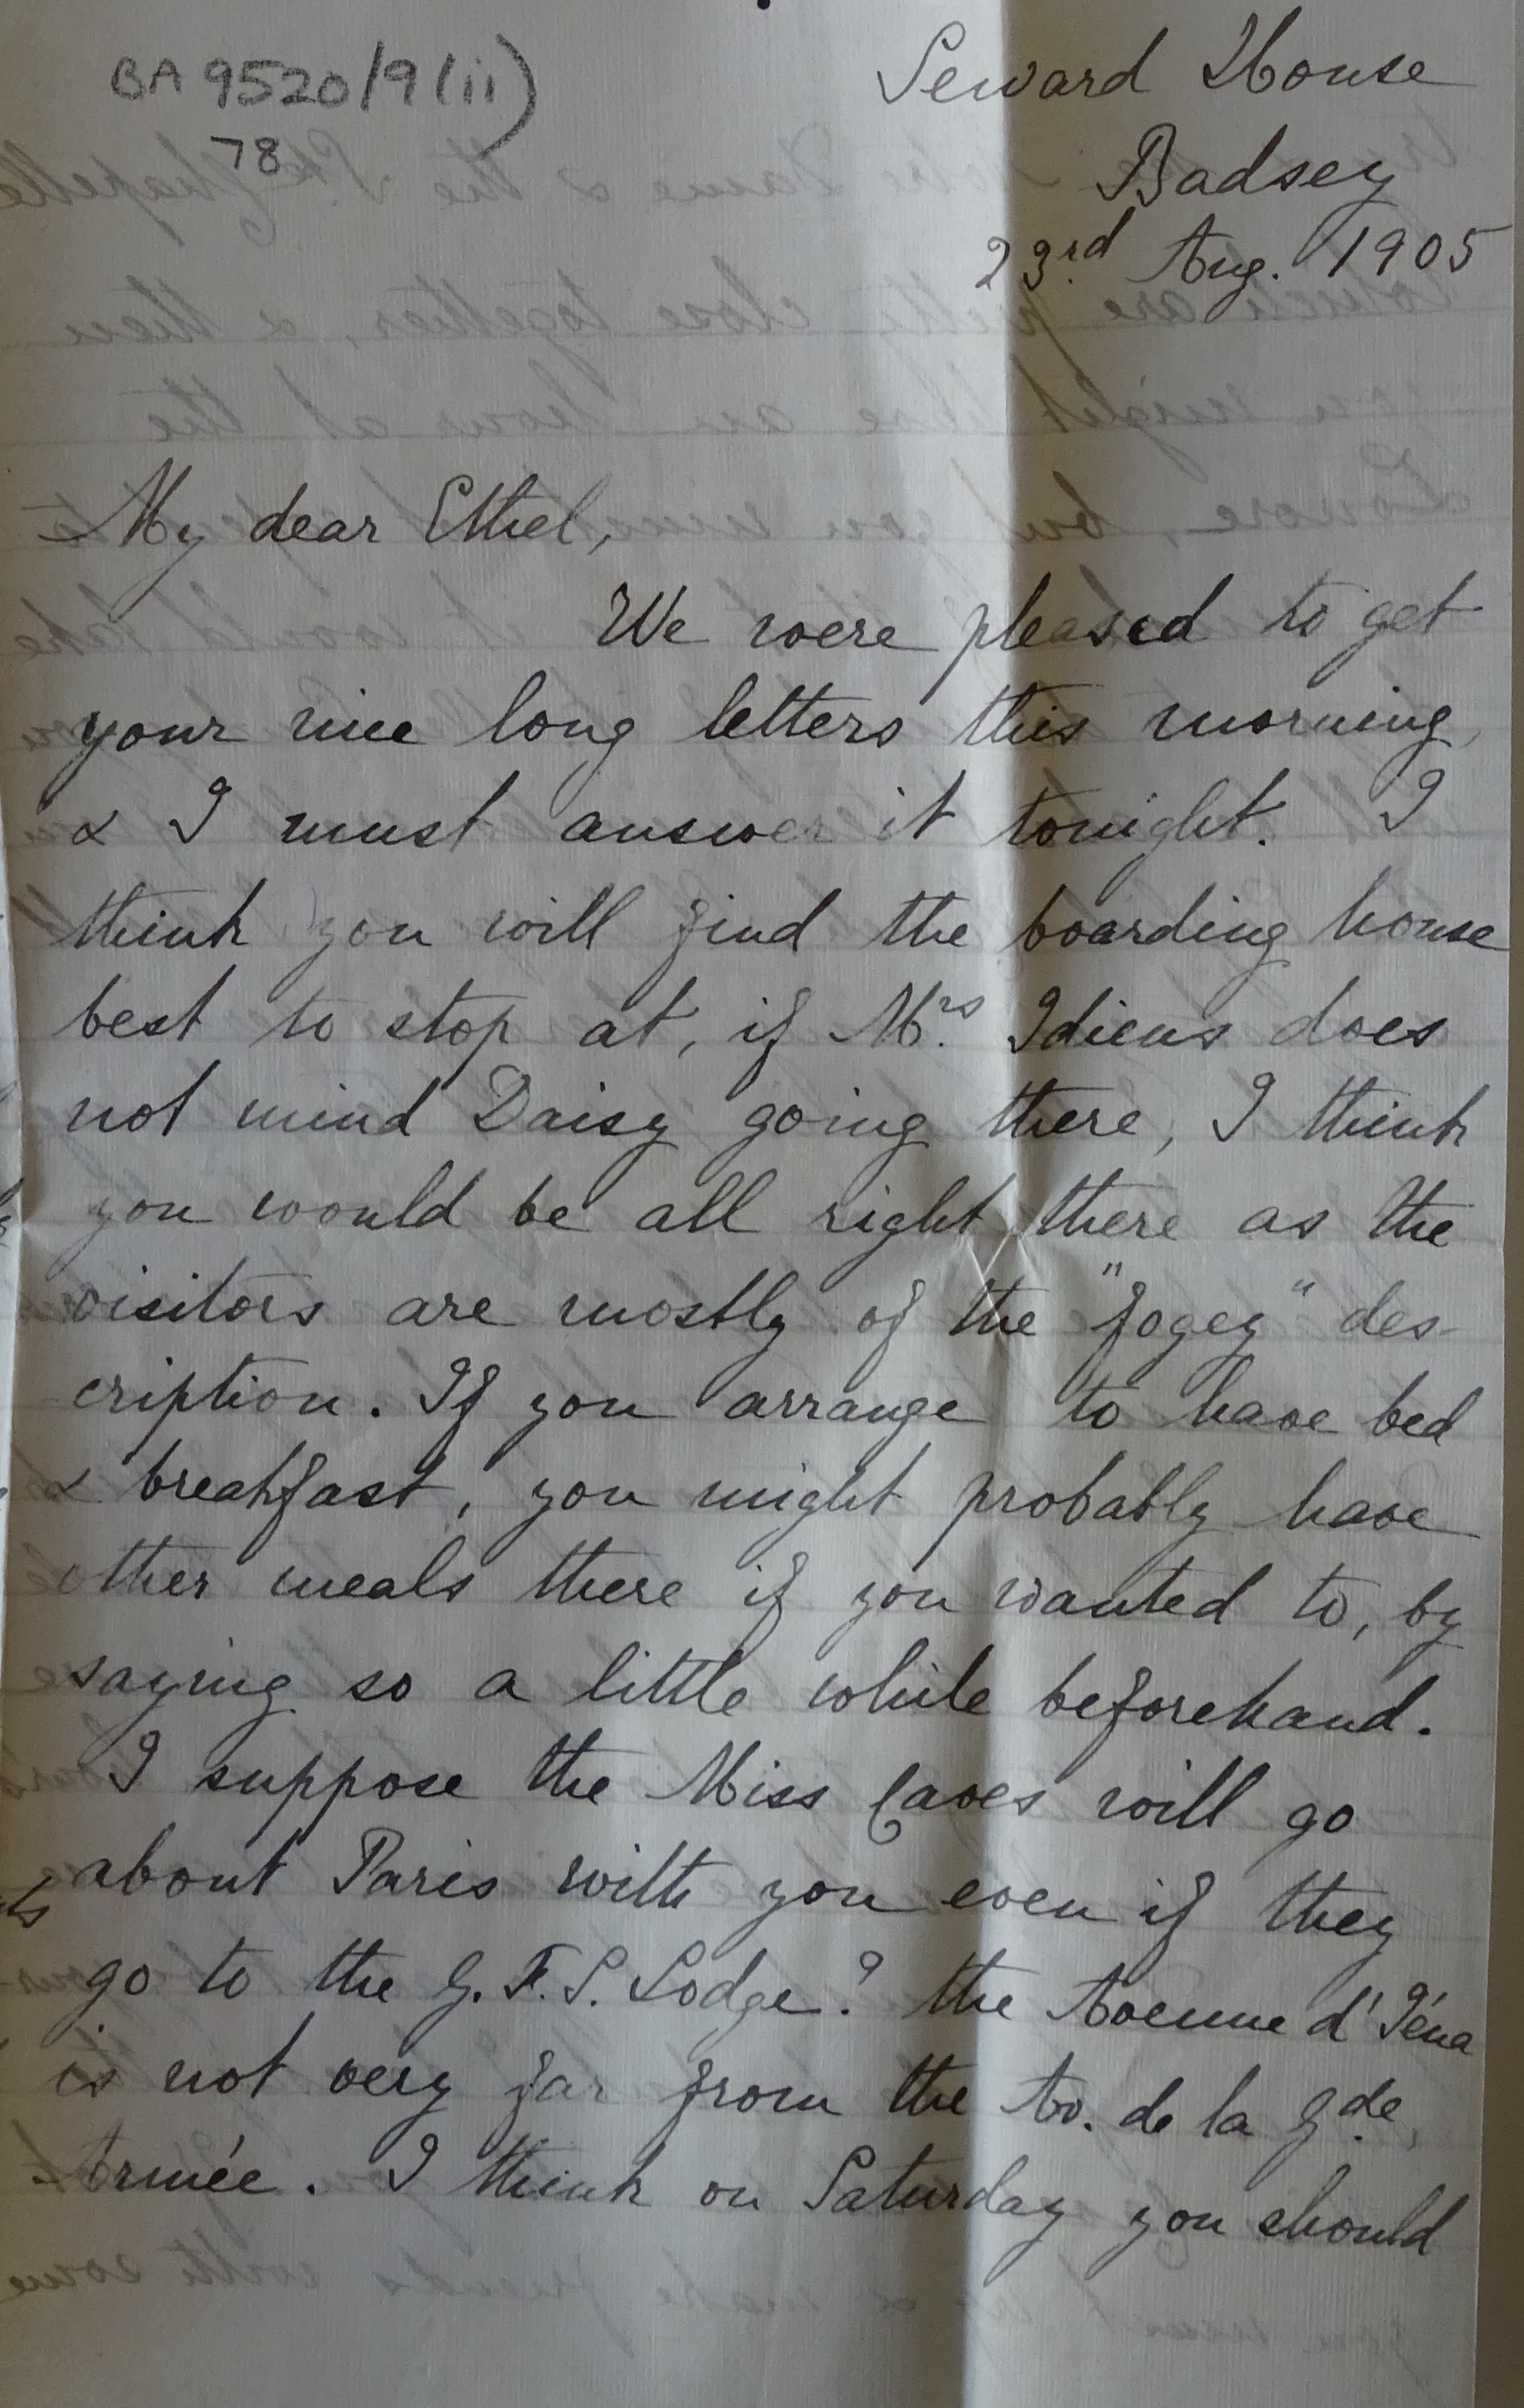 BA 9520/9(ii)
78
Seward House
Badsey
23rd Aug. 1905
My dear Ethel,
We were pleased to get
your nice long letters this morning,
& I must answer it tonight. I
think you will find the boarding house
best to stop at, if Mrs. Idiens does
not mind Daisy going there, I think
you would be all right there as the
visitors are mostly of the "fogey" des-
cription. If you arrange to have bed
& breakfast, you might probably have
other meals there if you wanted to, by
saying so a little while beforehand.
I suppose the Miss Caves will go
about Paris with you even if they
go to the G.F.S. Lodge? the Avenue d'Iéna
is not very far from the Av. de la Gde.
Armée. I think on Saturday you should